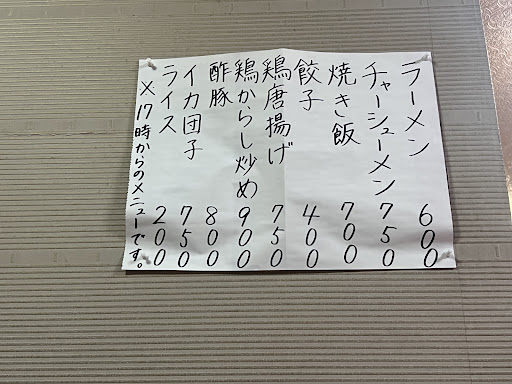 ラーメン 600
チャーシューメン 750
焼き飯 700
餃子 400
鶏唐揚げ 750
鶏からし炒め 900
酢豚 800
イカ団子 750
ライス 200
×17時からのメニューです。